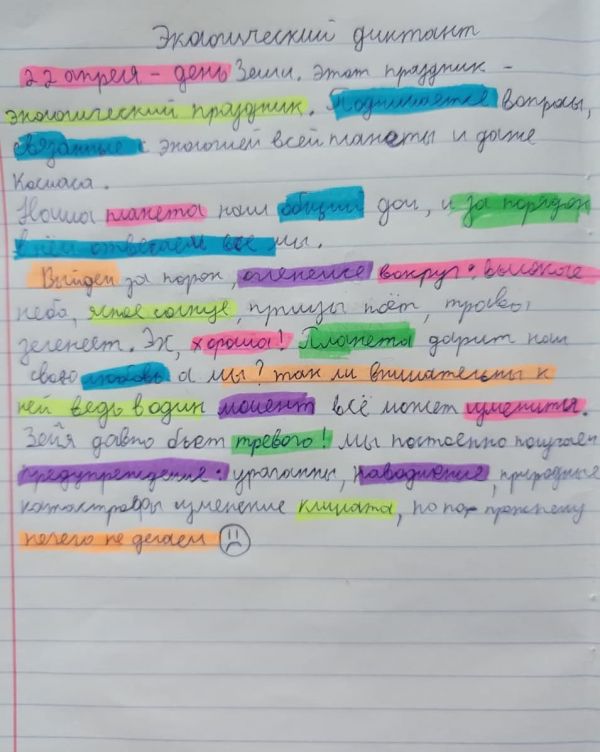 Экологический диктант
22 апреля - день Земли. Этот праздник -
экологический праздник. Поднимается вопросы,
связанные с экологией всей планеты и даже
Космаса.
Наша планета наш общий дом, и за порядок
в нём отвечаем все мы.
Выйдем за порог, вокруг: высокое
небо, ясное солнце, птицы поёт, трава
зеленеет. Эх, хороша! Планета дарит нам
свою любовь а мы? так ли внимательны к
ней ведь в один момент всё может изменится.
Земля давно бьет тревого! Мы постоенно получаем
предупреждения: ураганны, наводнения, природные
катастрофы изменение климата, но по прежнему
нечего не делаем